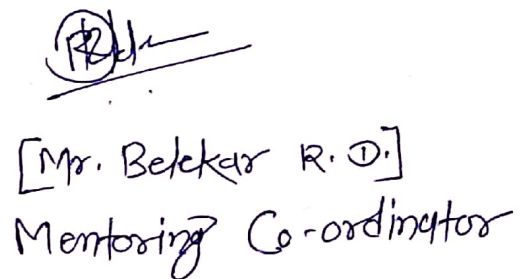 [Mr. Belekar R. D.]
Mentoring Co-ordinator